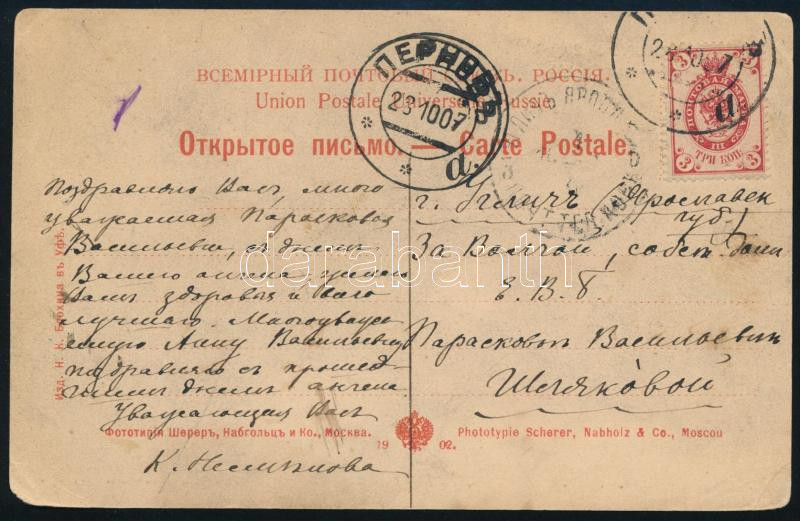 ВСЕМІРНЫЙ ПОЧТОВЫЙ РОССІЯ.
Union Postale Universelle Russie
Открытое письмо. — Carte Postale.
ПЕРНОВЪ
23 10 07
а
3 3
ТРИ КОП.
3 3
III
а
Поздравляю Васъ, много
уважаемая Парасковья
Васильевна, съ днемъ
Вашего ангела желаю
Вамъ здоровья и всего
лучшаго. Многоуважае
мую Анну Васильевну
поздравляю съ прошед
шимъ днемъ ангела
Уважающая Васъ
К.
г. Угличъ Ярославск
губ.
За Волгой, собст. домъ
Е. В. Б.
Парасковьѣ Васильевнѣ
Шляковой
Изд. Н. К. Блохина въ Уфѣ.
Фототипія Шереръ, Набгольцъ и Ко., Москва.
19 02.
Phototypie Scherer, Nabholz & Co., Moscou
darabanth